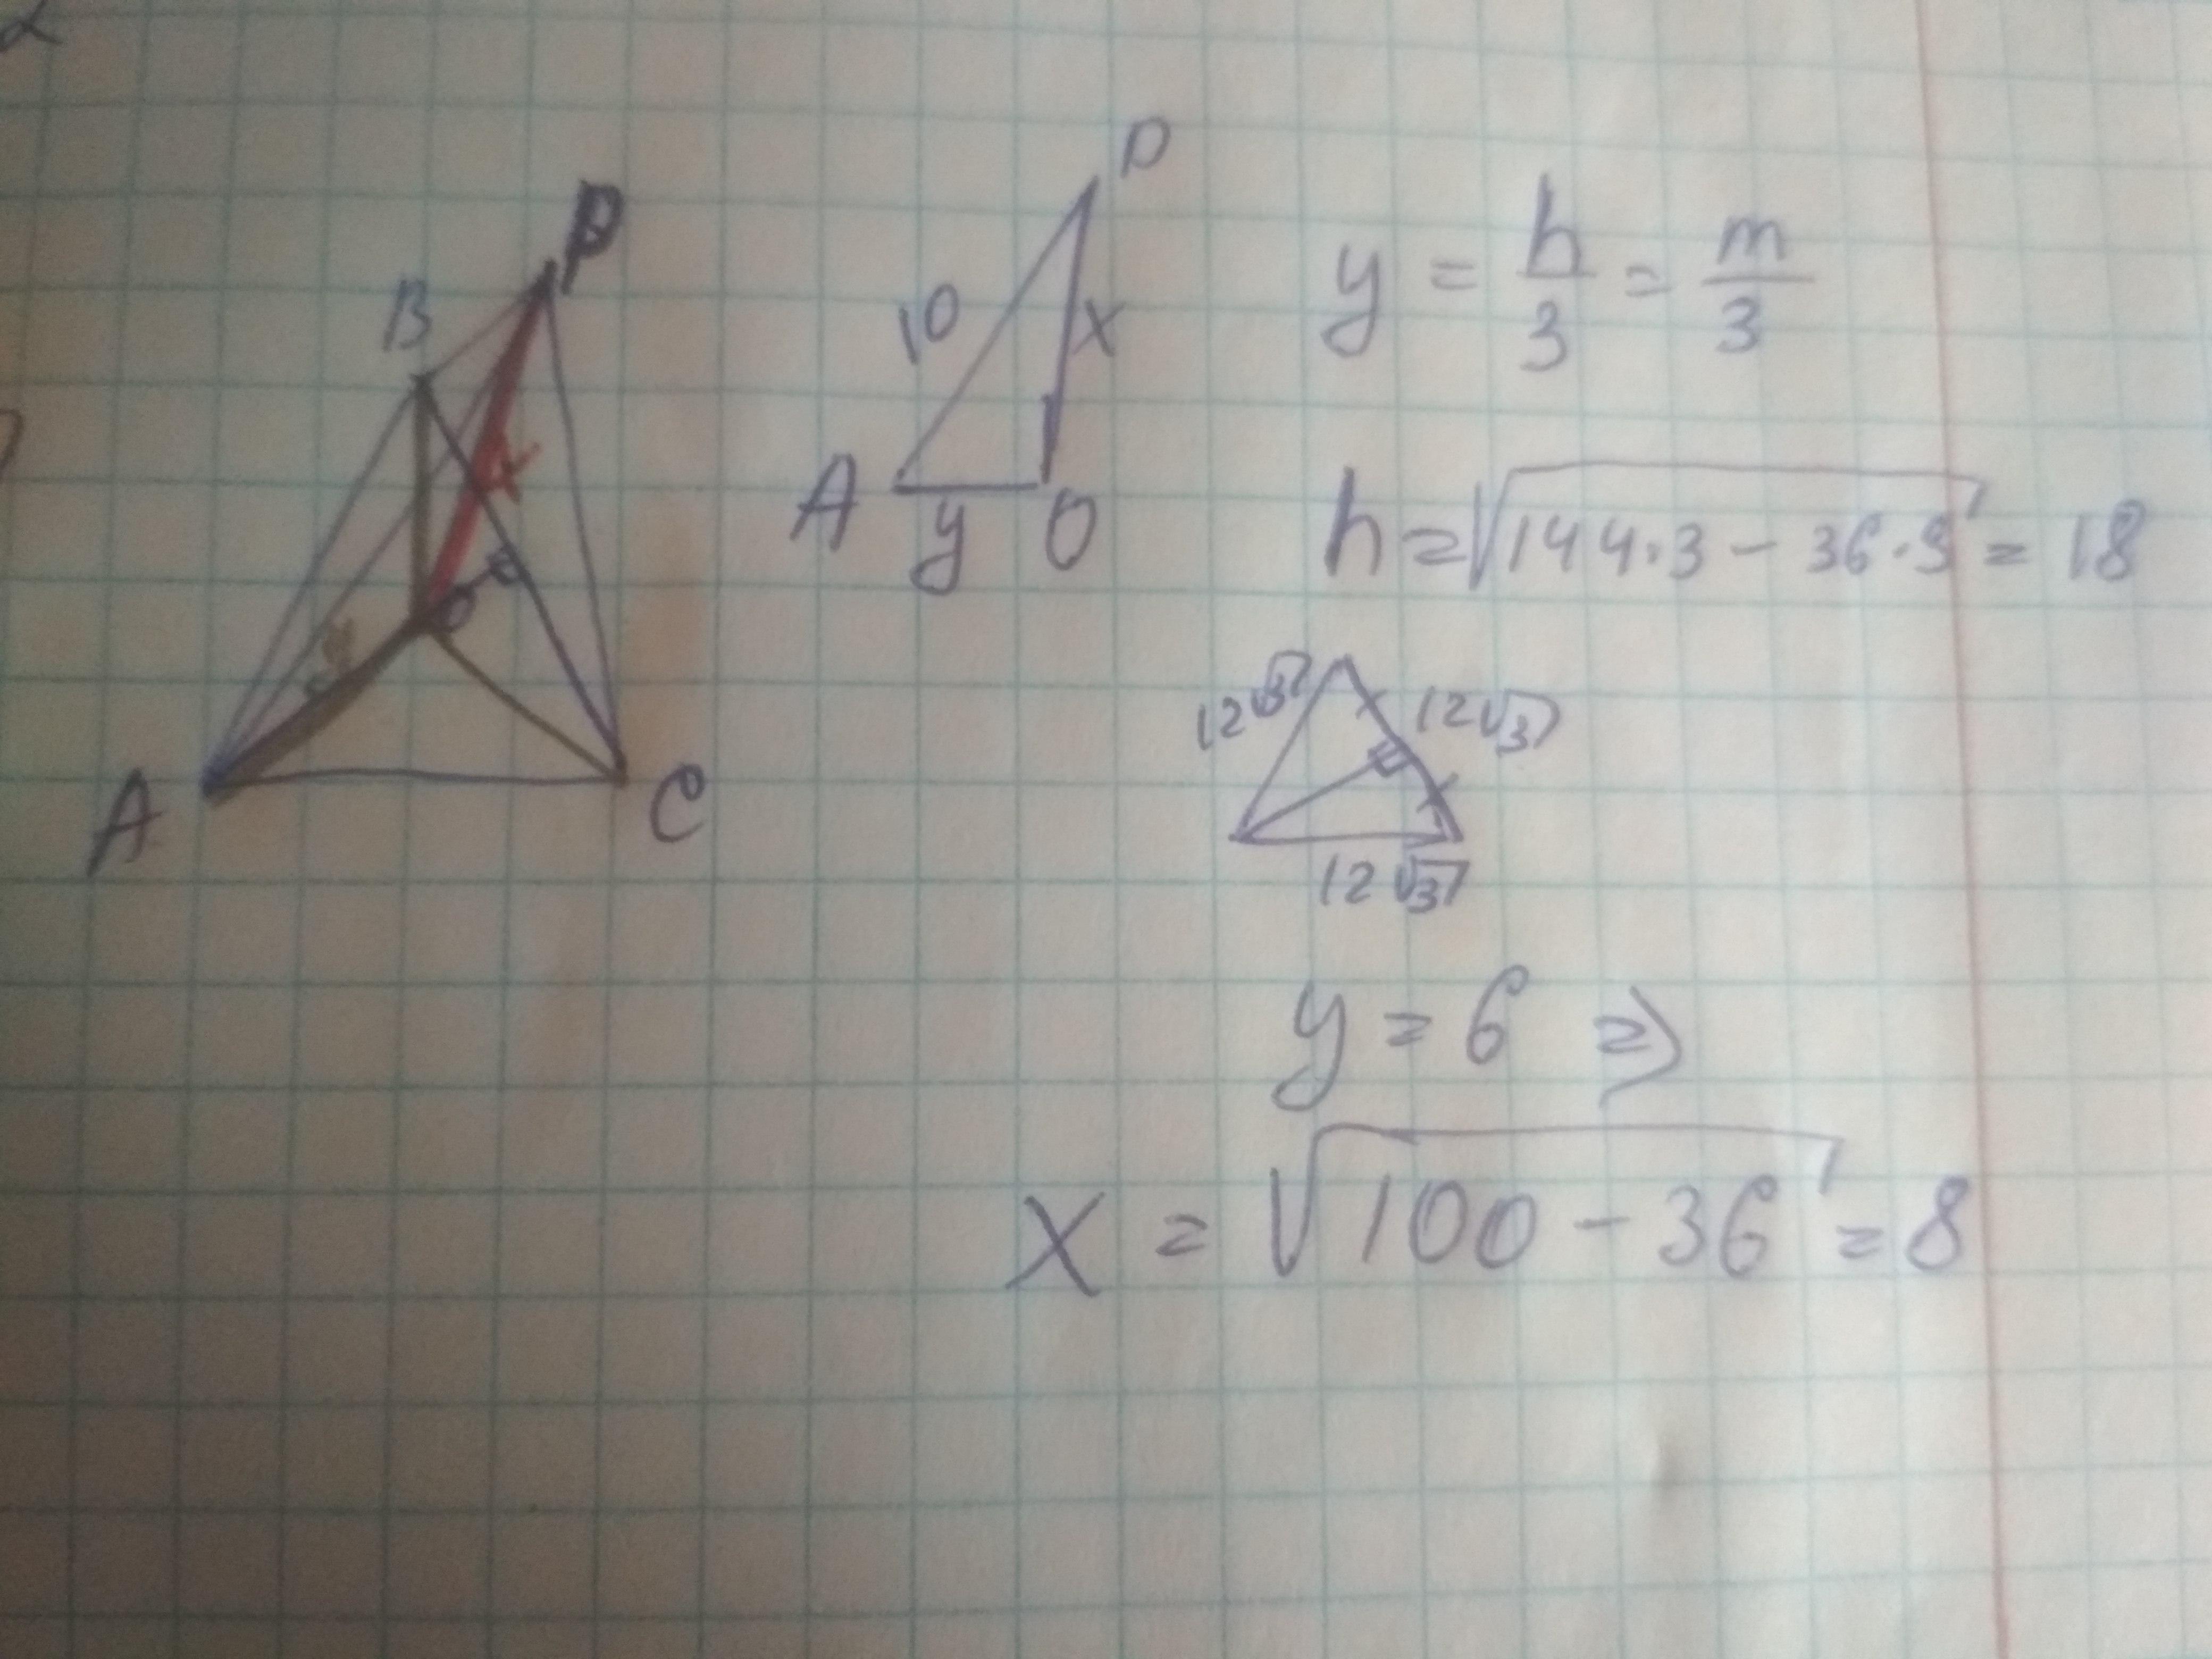 α
D
B
x
O
y
A
C
D
10
x
A
y
O
y = h/3 = m/3
h = √144·3 - 36·3 = 18
12√3
12√3
12√3
y = 6 ⇒
x = √100 - 36 = 8